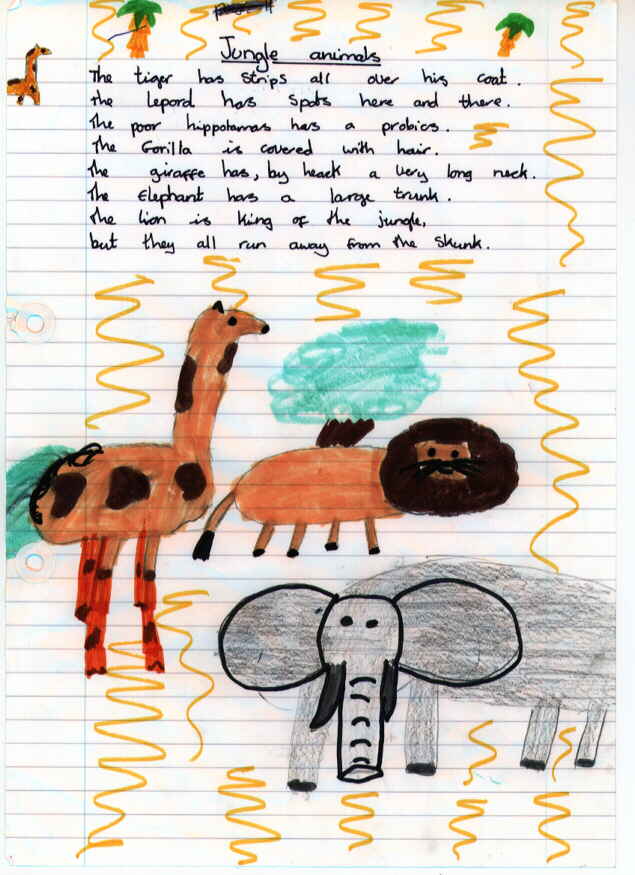 Jungle animals
The tiger has strips all over his coat.
the Lepord has spots here and there.
The poor hippotamas has a probics.
The Gorilla is covered with hair.
the giraffe has, by heack a very long neck.
The Elephant has a large trunk.
the lion is king of the jungle,
but they all run away from the skunk.